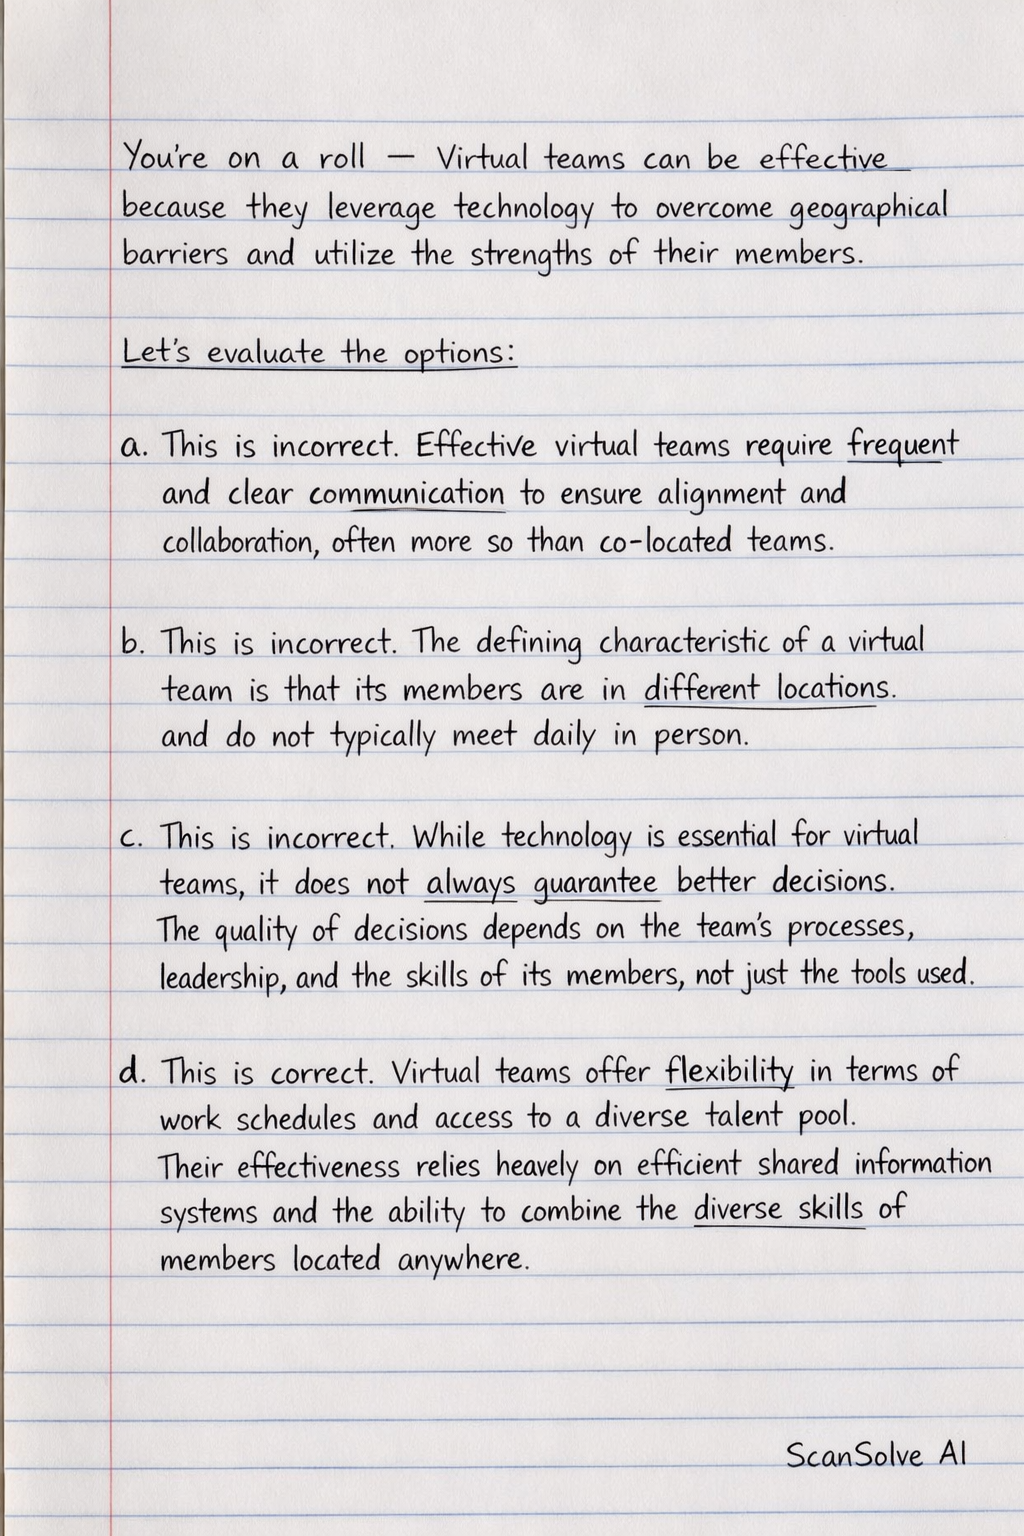 You're on a roll — Virtual teams can be effective
because they leverage technology to overcome geographical
barriers and utilize the strengths of their members.
Let's evaluate the options:
a. This is incorrect. Effective virtual teams require frequent
and clear communication to ensure alignment and
collaboration, often more so than co-located teams.
b. This is incorrect. The defining characteristic of a virtual
team is that its members are in different locations.
and do not typically meet daily in person.
c. This is incorrect. While technology is essential for virtual
teams, it does not always guarantee better decisions.
The quality of decisions depends on the team's processes,
leadership, and the skills of its members, not just the tools used.
d. This is correct. Virtual teams offer flexibility in terms of
work schedules and access to a diverse talent pool.
Their effectiveness relies heavely on efficient shared information
systems and the ability to combine the diverse skills of
members located anywhere.
ScanSolve AI